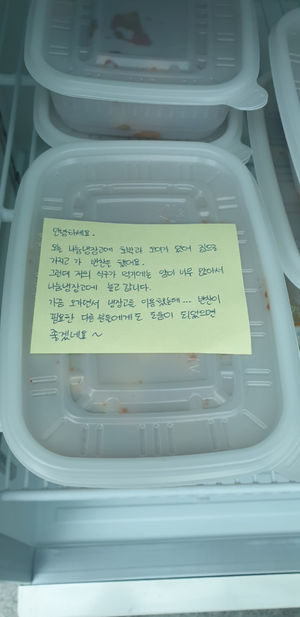 안녕하세요.
오늘 나눔냉장고에 호박과 오이가 있어 감으로
가지고 가 반찬을 했어요.
그런데 저희 식구가 먹기에는 양이 너무 많아서
나눔냉장고에 놓고 갑니다.
가끔 오가면서 냉장고를 이용했는데... 반찬이
필요한 다른 분들에게도 도움이 되었으면
좋겠네요~